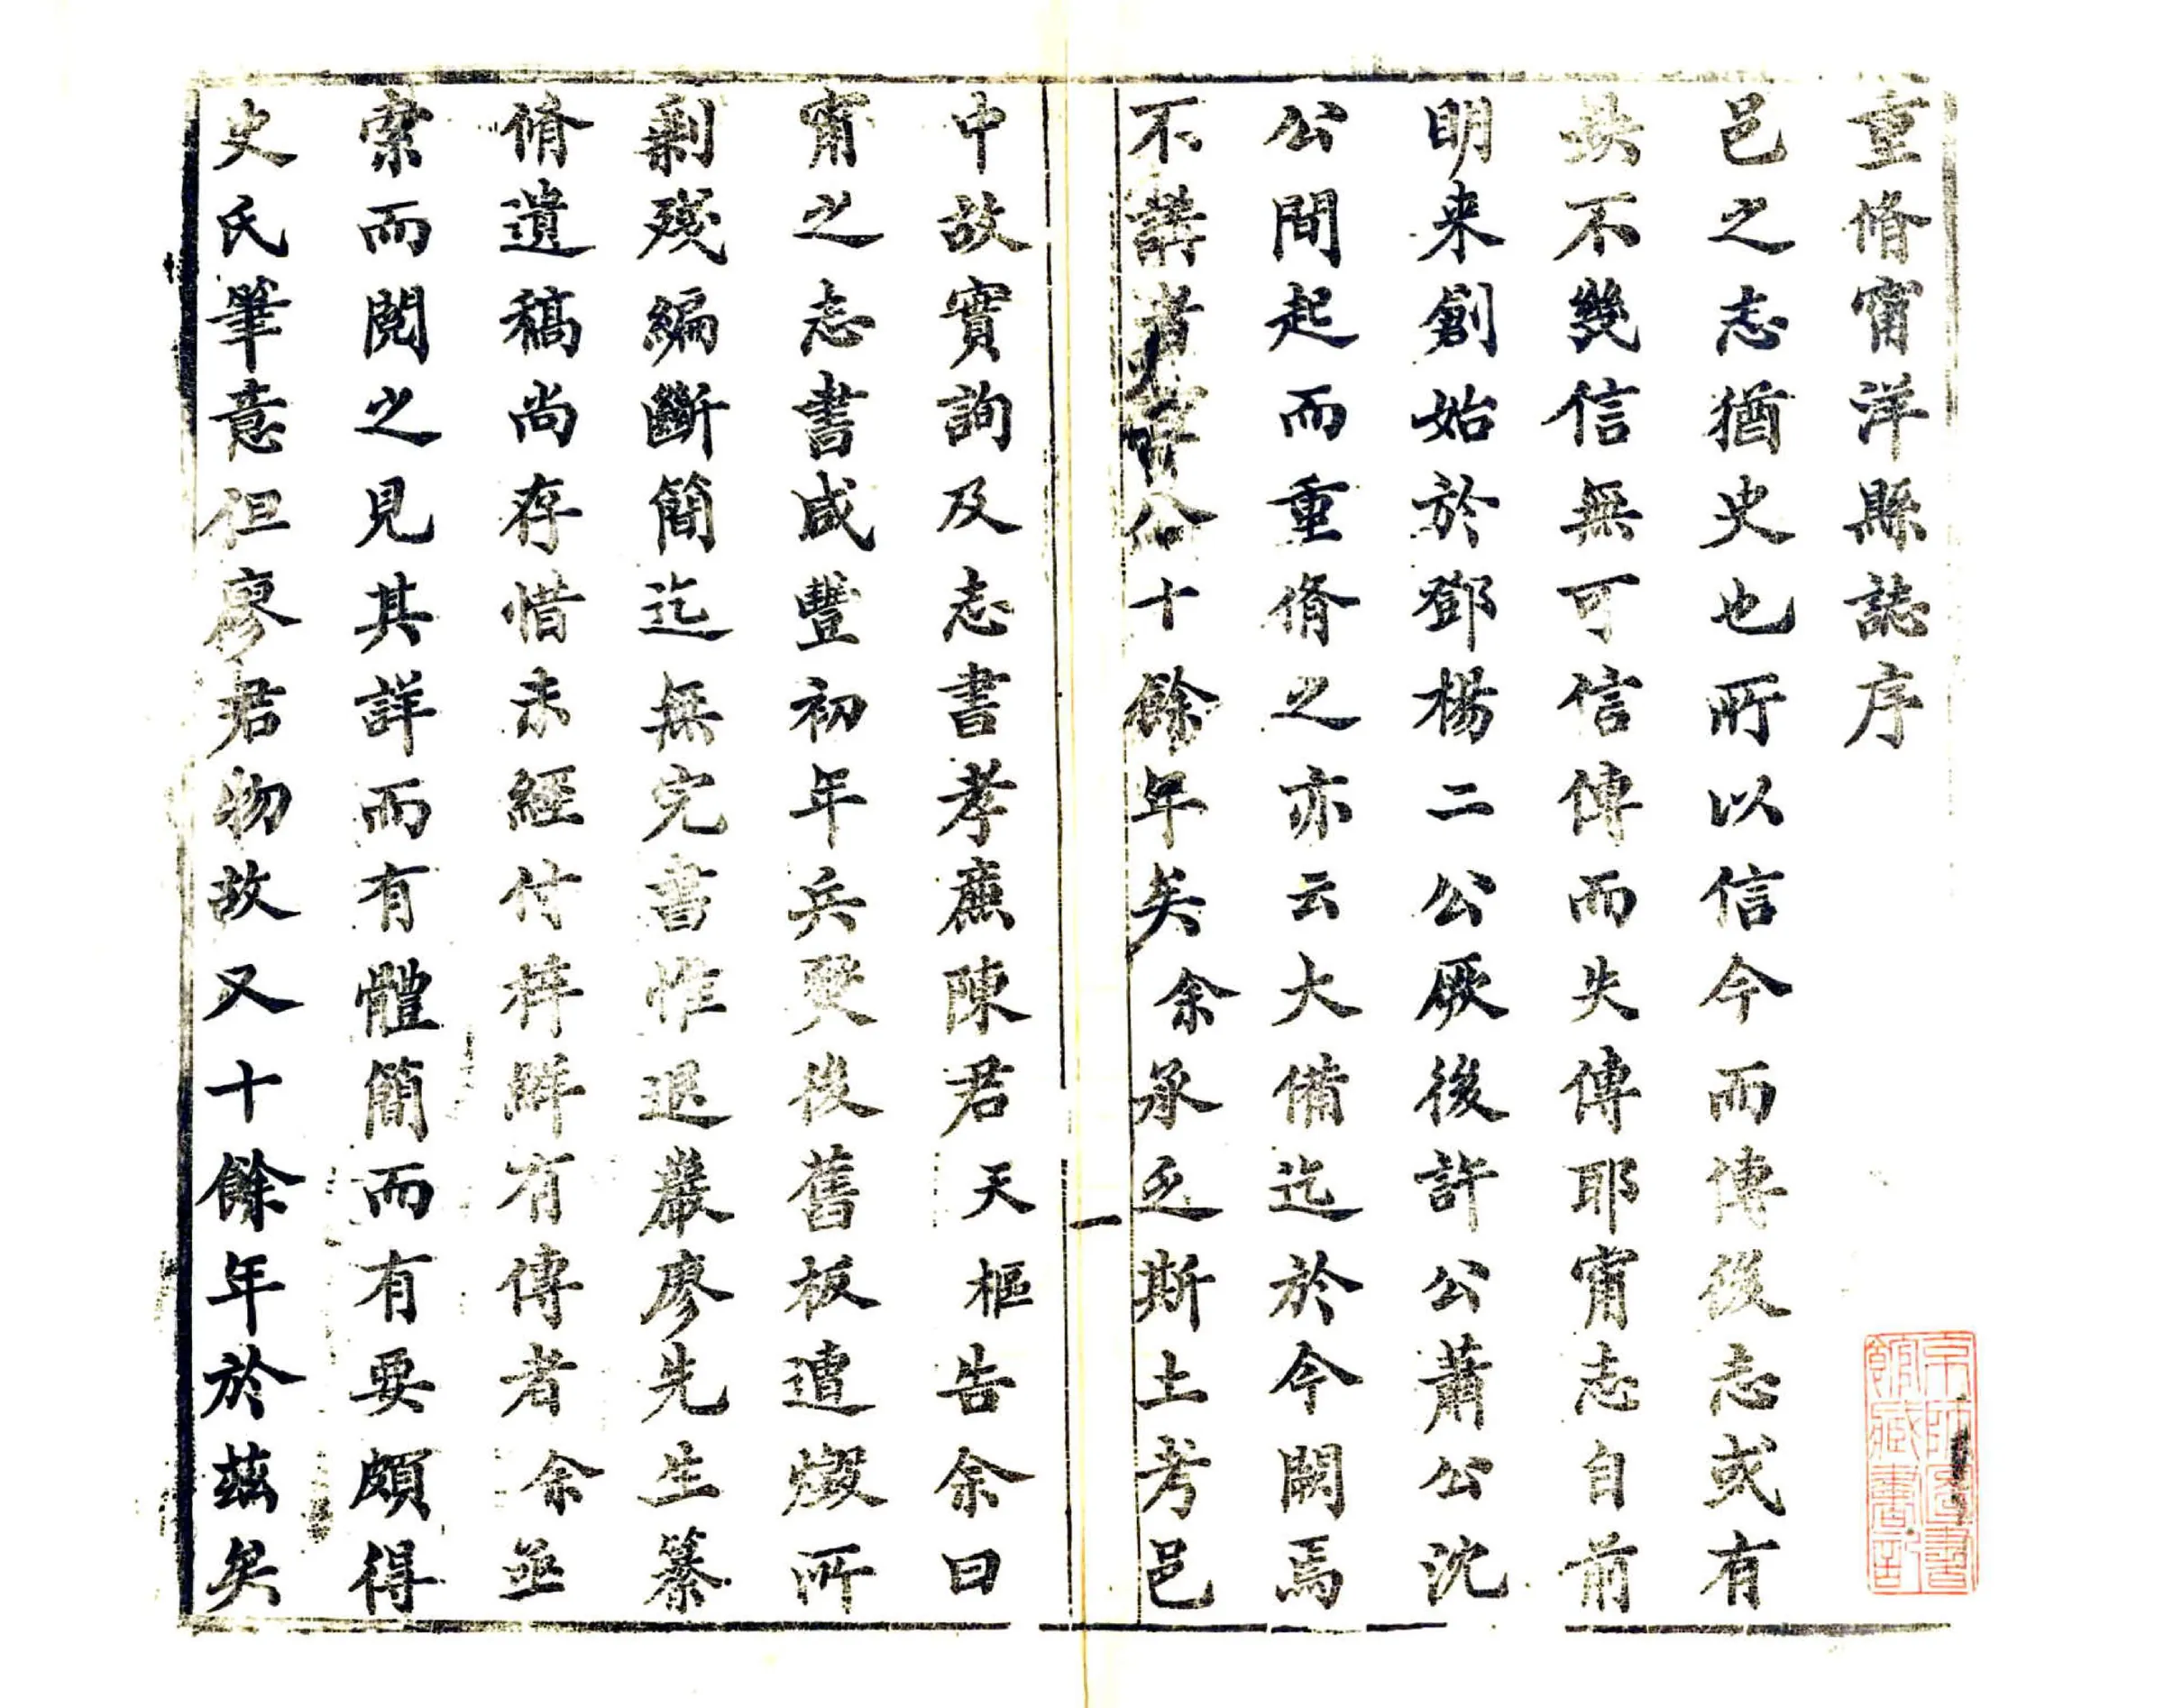 重脩甯洋縣誌序
邑之志猶史也所以信今而傳後志或有
缺不幾信無可信傳而失傳耶甯志自前
明来創始於鄧楊二公厥後許公蕭公沈
公間起而重脩之亦云大備迄於今闕焉
不講者八十餘年矣余承乏斯土考邑
中故實詢及志書孝廉陳君天樞告余曰
甯之志書咸豐初年兵燹後舊板遭燬所
剩殘編斷簡迄無完書惟退巖廖先生纂
脩遺稿尚存惜未經付梓鮮有傳者余亟
索而閱之見其詳而有體簡而有要頗得
史氏筆意但廖君物故又十餘年於茲矣
一
京師圖書
館藏書記